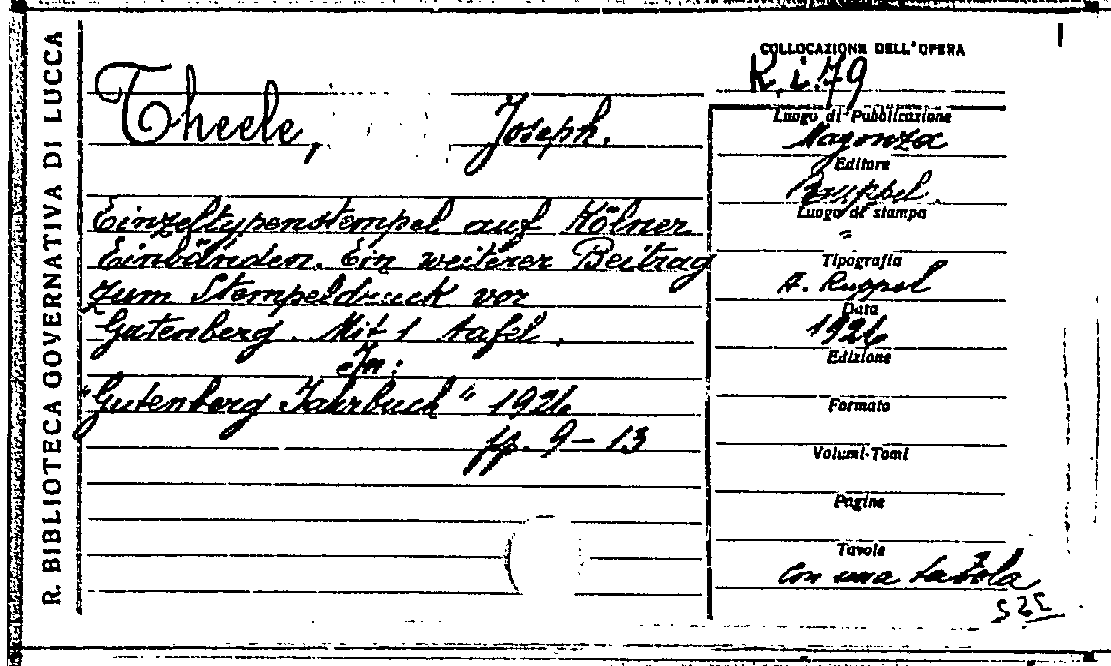 R. BIBLIOTECA GOVERNATIVA DI LUCCA
Theele, Joseph.
Einzeltypenstempel auf Kölner
Einbänden. Ein weiterer Beitrag
zum Stempeldruck vor
Gutenberg. Mit 1 tafel.
In:
"Gutenberg Jahrbuch" 1926
pp. 9-13
COLLOCAZIONE DELL'OPERA
R. i. 79
Luogo di Pubblicazione
Magonza
Editore
Ruppel.
Luogo di stampa
"
Tipografia
A. Ruppel
Data
1926
Edizione
Formato
Volumi-Tomi
Pagine
Tavole
con una tavola